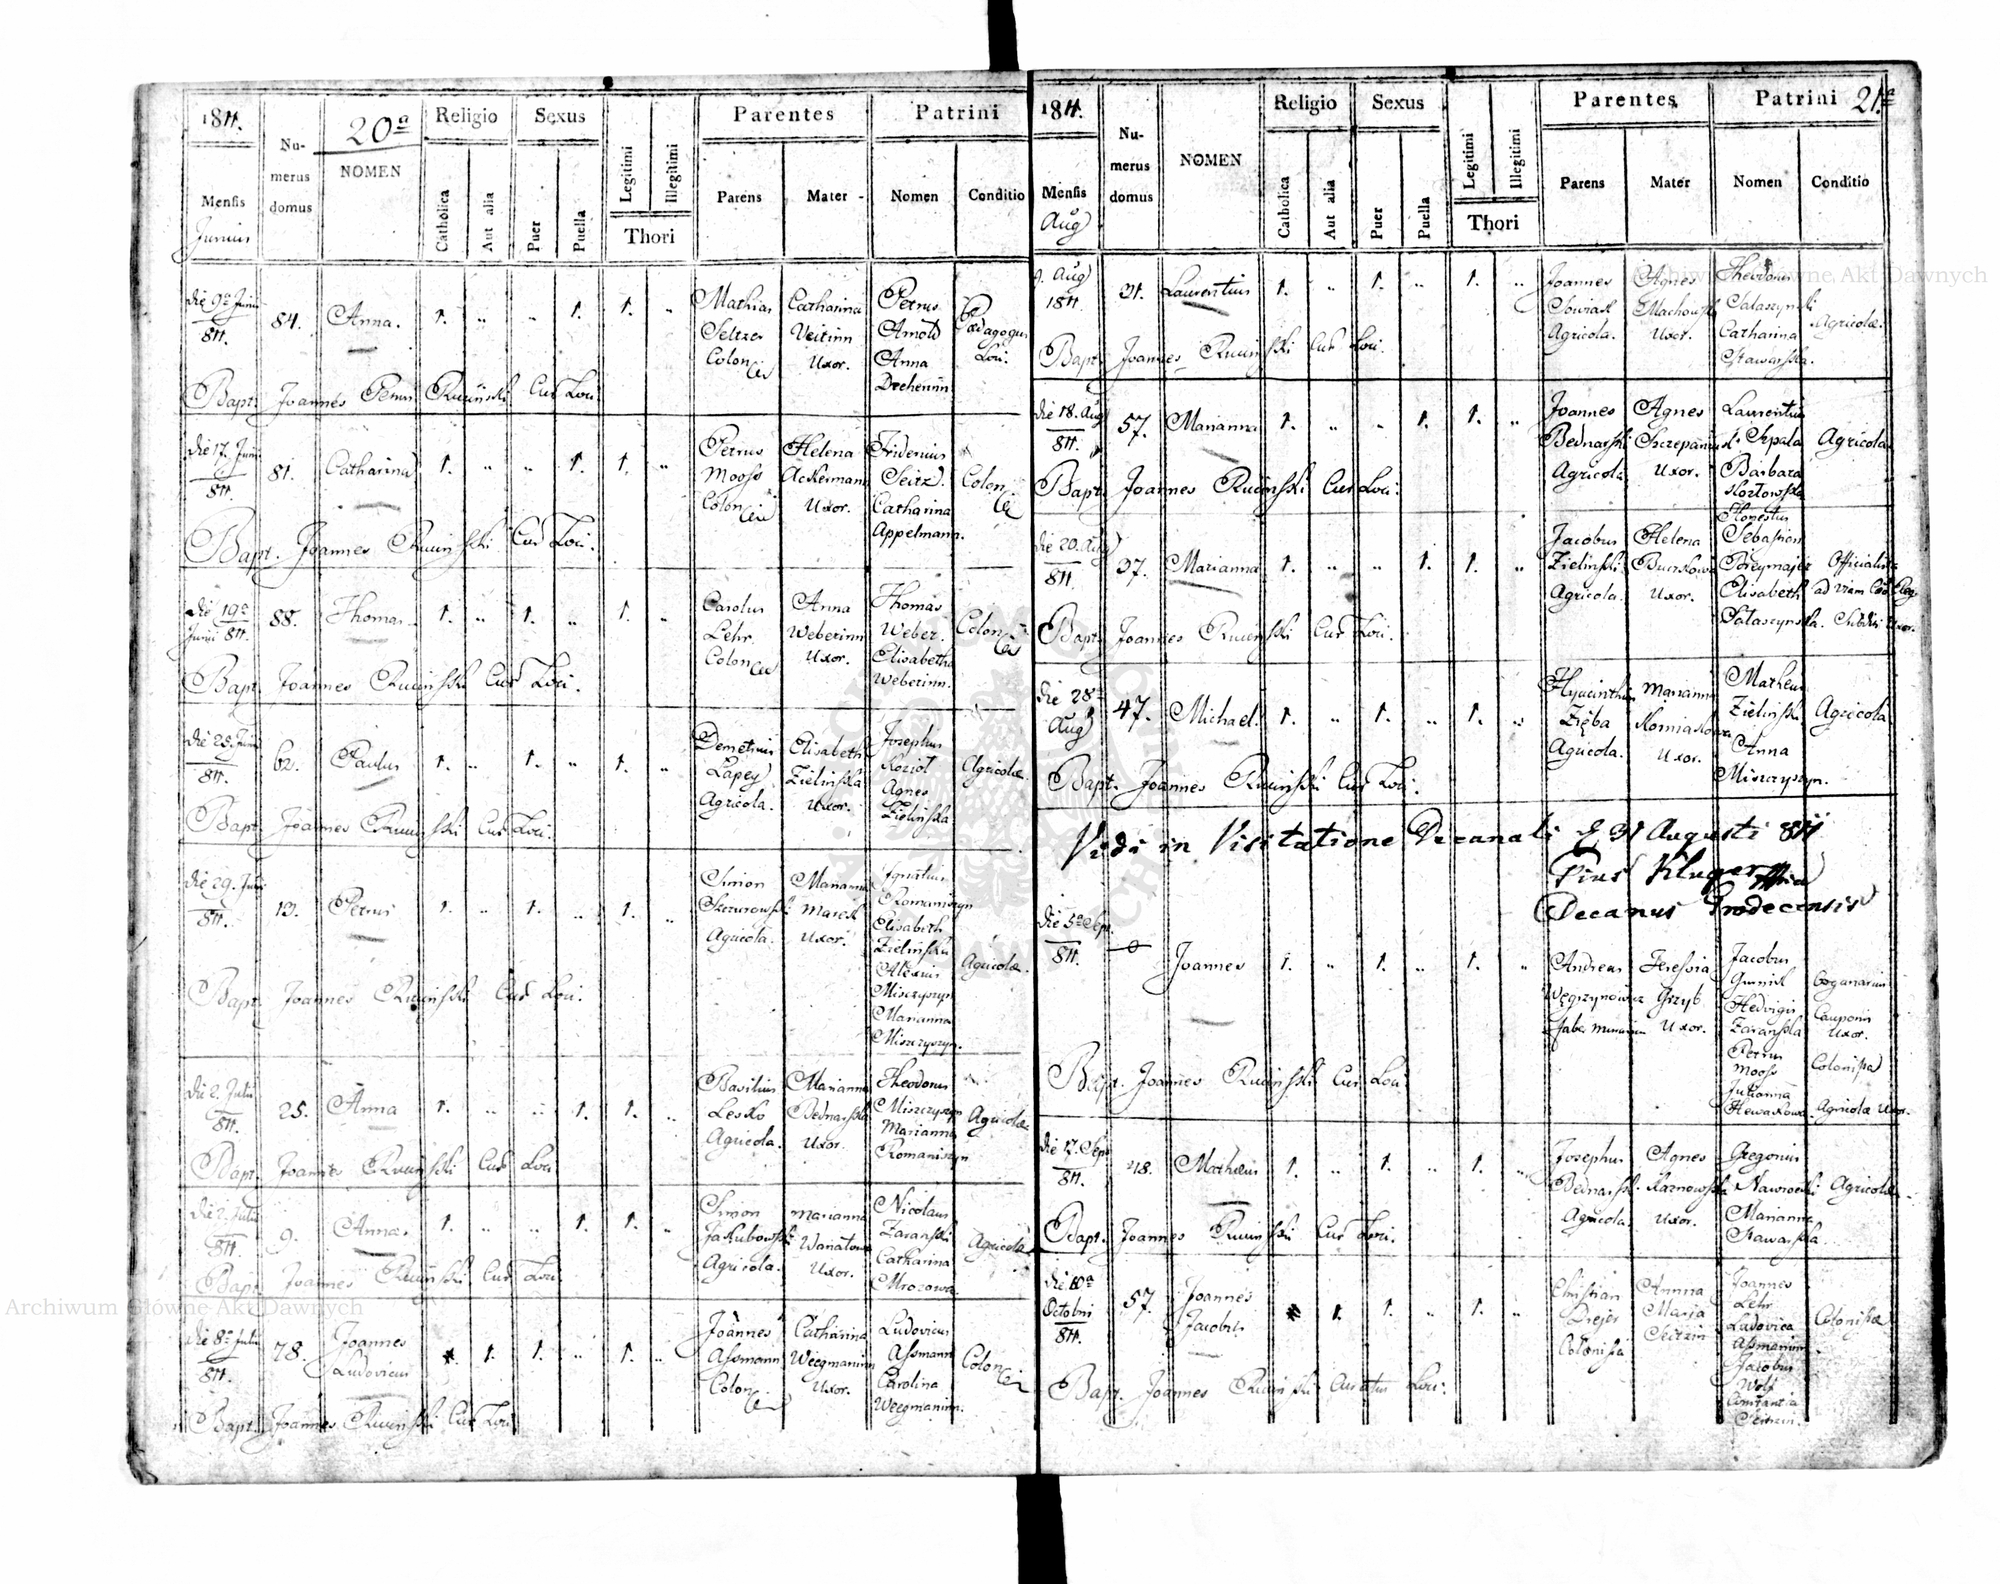 1811.
20ª
Nu-
merus
domus
NOMEN
Religio
Sexus
Parentes
Patrini
Mensis
Junius
Catholica
Aut alia
Puer
Puella
Legitimi
Illegitimi
Thori
Parens
Mater
Nomen
Conditio
die 9ª Junii 84. Anna. 1. „ „ 1. 1. „ Mathias Catharina Petrus Pædagogus
811. Seltzer Veitinn Arnold Loci.
Colon Uxor. Anna
Dreherinn
Bapt. Joannes Petrus Ruciński Cur Loci.
die 17. Junii 81. Catharina 1. „ „ 1. 1. „ Petrus Helena Fridericus
811. Mooss Ackermann Seitz. Colon
Colon Uxor. Catharina
Appelmann.
Bapt. Joannes Ruciński Cur Loci.
die 19ª 88. Thomas 1. „ 1. „ 1. „ Carolus Anna Thomas
Junii 811. Lehr. Weberinn Weber. Colon
Colon Uxor. Elisabetha
Weberinn.
Bapt. Joannes Ruciński Cur Loci.
die 25. Junii 62. Paulus 1. „ 1. „ 1. „ Demetrius Elisabeth Josephus
811. Lapey Zielińska Kozioł Agricolæ.
Agricola. Uxor. Agnes
Zielińska
Bapt. Joannes Ruciński Cur Loci.
die 29. Junii 13. Petrus 1. „ 1. „ 1. „ Simon Marianna Ignatius
811. Szczurowski Marek Romaniszyn
Agricola. Uxor. Elisabeth
Zielińska
Alexius Agricolæ.
Miszczyszyn
Marianna
Miszczyszyn.
Bapt. Joannes Ruciński Cur Loci.
die 2. Julii 25. Anna 1. „ „ 1. 1. „ Basilius Marianna Theodorus
811. Lesko Bednarska Miszczyszyn Agricolæ
Agricola. Uxor. Marianna
Romaniszyn
Bapt. Joannes Ruciński Cur Loci
die 2. Julii 9. Anna. 1. „ „ 1. 1. „ Simon Marianna Nicolaus
811. Jakubowski Waniatowa Zarański Agricolæ
Agricola. Uxor. Catharina
Mrozowa
Bapt. Joannes Ruciński Cur Loci.
die 8ª Julii 78. Joannes 1. 1. „ 1. „ Joannes Catharina Ludovicus
811. Ludovicus Assmann Weegmaninn Assmann Colon
Colon Uxor. Carolina
Weegmaninn.
Bapt. Joannes Ruciński Cur Loci
1811.
21.ª
Nu-
merus
domus
NOMEN
Religio
Sexus
Parentes
Patrini
Mensis
Aug
Catholica
Aut alia
Puer
Puella
Legitimi
Illegitimi
Thori
Parens
Mater
Nomen
Conditio
9. Aug 31. Laurentius 1. „ 1. „ 1. „ Joannes Agnes Theodorus
1811. Machowska Sałaszyński
Agricola. Uxor. Catharina Agricolæ.
Stawarska.
Bapt. Joannes Ruciński Cur Loci.
die 18. Aug 57. Marianna 1. „ „ 1. 1. „ Joannes Agnes Laurentius
811. Bednarski Szczepaniuk Szpala Agricolæ
Agricola Uxor. Barbara
Kozłowska
Bapt. Joannes Ruciński Cur Loci.
die 20. Aug 37. Marianna 1. „ „ 1. 1. „ Jacobus Helena Honestus
811. Zieliński Sebastian
Agricola. Uxor. Elisabeth ad viam
Sałaszyńska.
Bapt. Joannes Ruciński Cur Loci.
die 28ª 47. Michael. 1. „ 1. „ 1. „ Hyacinthus Marianna Matheus
Aug Zięba Zieliński Agricola
Agricola. Uxor. Anna
Miszczyszyn.
Bapt. Joannes Ruciński Cur Loci.
Vidi in Visitatione Decanali d 31 Augusti 811
Pius Kluger
Decanus Grodecensis
die 5ª Sept. Joannes 1. „ 1. „ 1. „ Andreas Theressia Jacobus
811. Węgrzynowicz Grzyb Organarius
faber murarius Uxor. Hedvigis Cauponis
Zarańska Uxor.
Petrus
Mooss Colonista
Julianna
Agricolæ Uxor.
Bapt. Joannes Ruciński Cur Loci
die 17. Sept 48. Matheus 1. „ 1. „ 1. „ Josephus Agnes Gregorius
811. Bednarski Karnowska Nawrocki Agricolæ
Agricola. Uxor. Marianna
Stawarska.
Bapt. Joannes Ruciński Cur Loci.
die 10ª 57. Joannes 1. 1. „ 1. „ Christian Annna Joannes
Octobri Jacobus Drejer Maria Lehr
811. Colonista Seitzin Ludovica Colonistæ
Assmaninn
Jacobus
Wolf
Seitzin.
Bapt. Joannes Ruciński Curatus Loci.
Archiwum Główne Akt Dawnych
Archiwum Główne Akt Dawnych